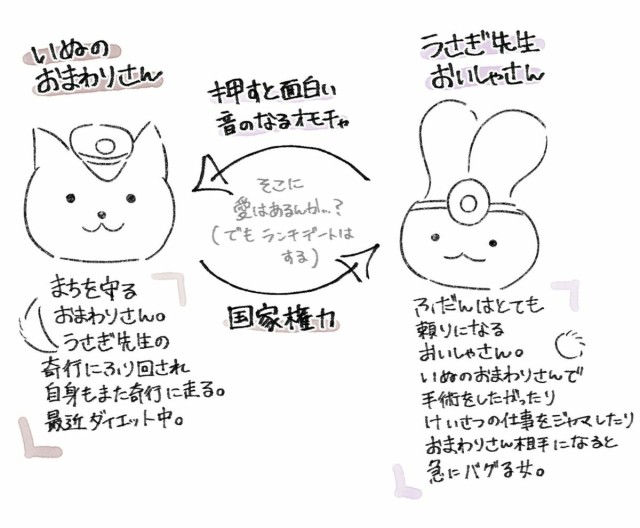 いぬの
おまわりさん
うさぎ先生
おいしゃさん
押すと面白い
音のなるオモチャ
そこに
愛はあるんか…?
(でもランチデートは
する)
国家権力
まちを守る
おまわりさん。
うさぎ先生の
奇行にふり回され
自身もまた奇行に走る。
最近ダイエット中。
ふだんはとても
頼りになる
おいしゃさん。
いぬのおまわりさんで
手術をしたがったり
けいさつの仕事をジャマしたり
おまわりさん相手になると
急にバグる女。